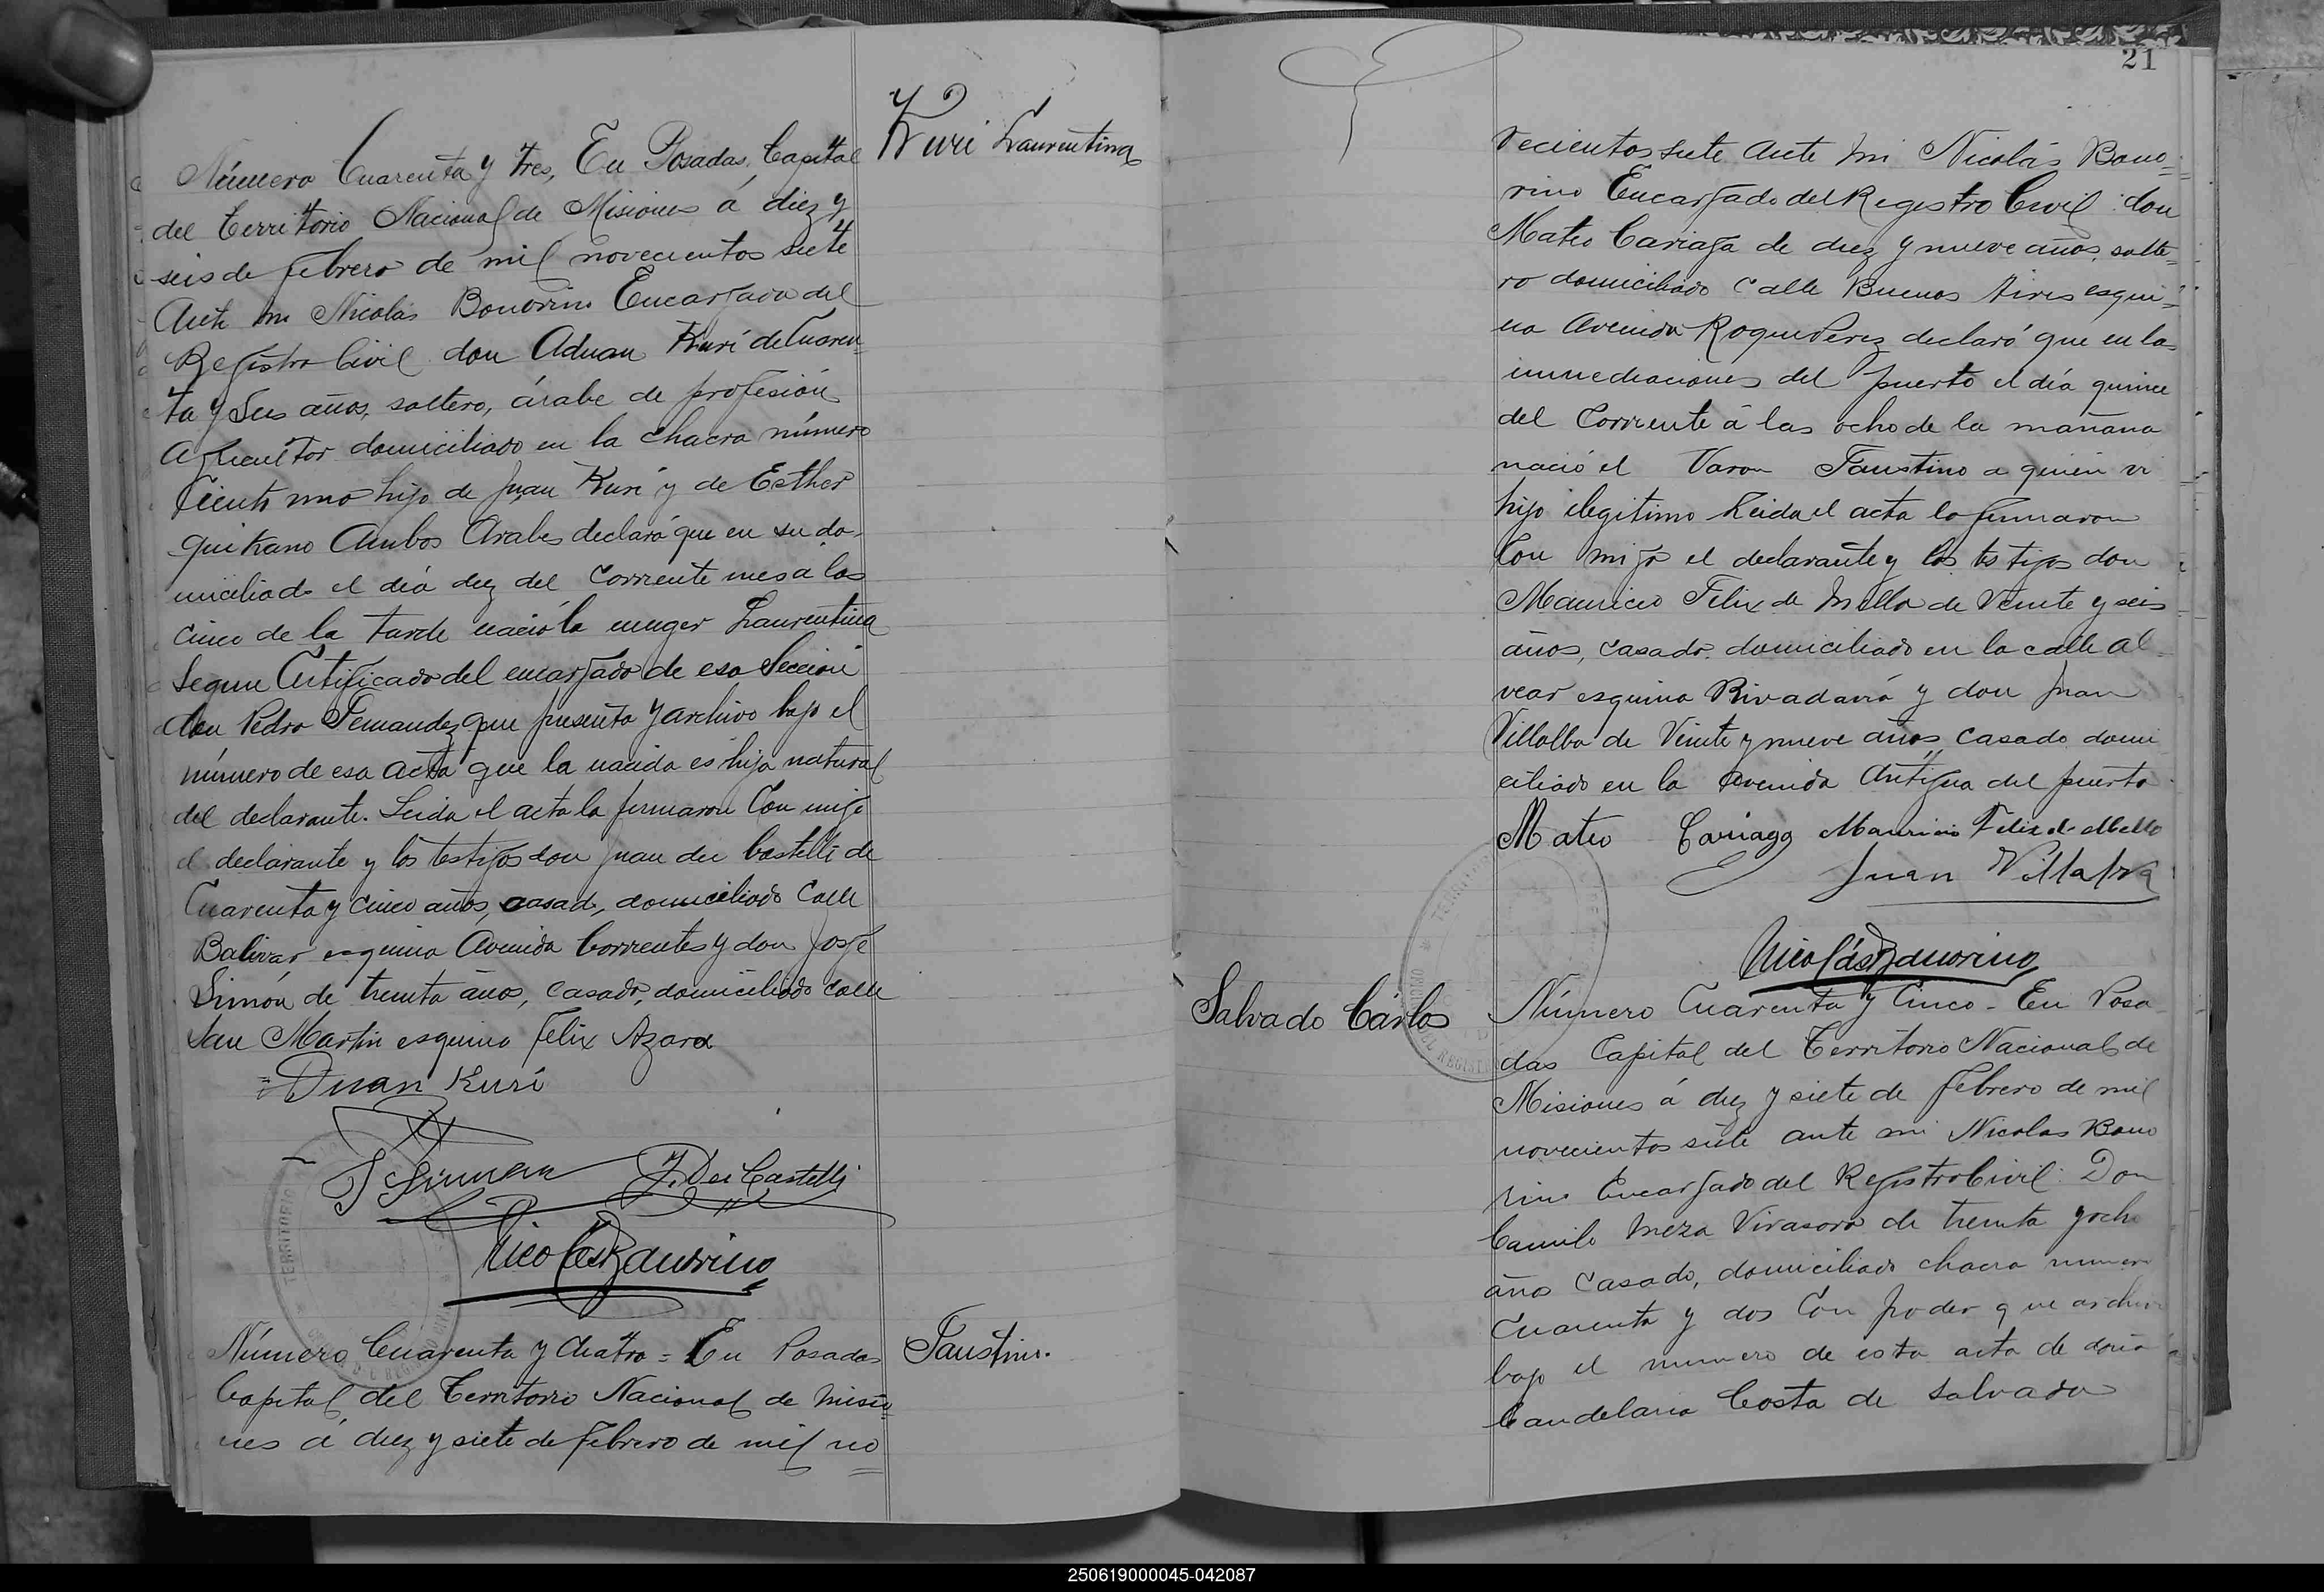 Kuri Laurentina
Número Cuarenta y tres, En Posadas, Capital
del Territorio Nacional de Misiones á diez y
seis de febrero de mil novecientos siete
Ante mi Nicolás Bonorino Encargado del
Registro Civil don Aduan Kuri de Cuaren=
ta y Seis años, soltero, árabe de profesión
agricultor domiciliado en la chacra número
Ciento uno hijo de Juan Kuri y de Esther
Ambos Arabes declaró que en su do-
miciliado el día diez del corriente mes a las
cinco de la tarde nació la muger Laurentina
Segun Certificado del encargado de esa Sección
don Pedro Fernandez que presenta y archivo bajo el
número de esa acta que la nacida es hija natural
del declarante. Leida el acta la firmaron Con migo
el declarante y los testigos don Juan dei Castelli de
Cuarenta y cinco años, casado, domiciliado Calle
Balivar esquina Avenida Corrientes y don José
Simón de treinta años, casado, domiciliado calle
San Martin esquina Felix Azara
Duan Kuri
J. Dei Castelli
Nicolás Bonorino
TERRITORIO
Número Cuarenta y Cuatro = En Posadas
Faustino.
Capital del Territorio Nacional de Misio=
nes á diez y siete de febrero de mil no=
21
vecientos siete Ante mi Nicolás Bono=
rino Encargado del Registro Civil don
Mateo Cariaga de diez y nueve años, solte=
ro domiciliado calle Buenos Aires esqui=
na Avenida Roque Perez declaró que en las
inmediaciones del puerto el día quince
del Corriente á las ocho de la mañana
nació el Varon Faustino a quien vi
hijo ilegitimo Leida el acta lo firmaron
Con migo el declarante y los testigos don
Mauricio Felix de Mello de Veinte y seis
años, casado, domiciliado en la calle Al-
vear esquina Rivadavia y don Juan
Villalba de Veinte y nueve años, casado domi
ciliado en la Avenida Antigua del puerto
Mateo Cariaga Mauricio Felix de Mello
Juan Villalba
Nicolás Bonorino
Salvado Cárlos
Número Cuarenta y Cinco - En Posa
das Capital del Territorio Nacional de
Misiones á diez y siete de febrero de mil
novecientos siete ante mi Nicolas Bono
rino Encargado del Registro Civil: Don
Camilo Meza Virasoro de treinta y ocho
años casado, domiciliado chacra numero
cuarenta y dos Con poder que archivo
bajo el numero de esta acta de doña
Candelaria Costa de Salvado
250619000045-042087